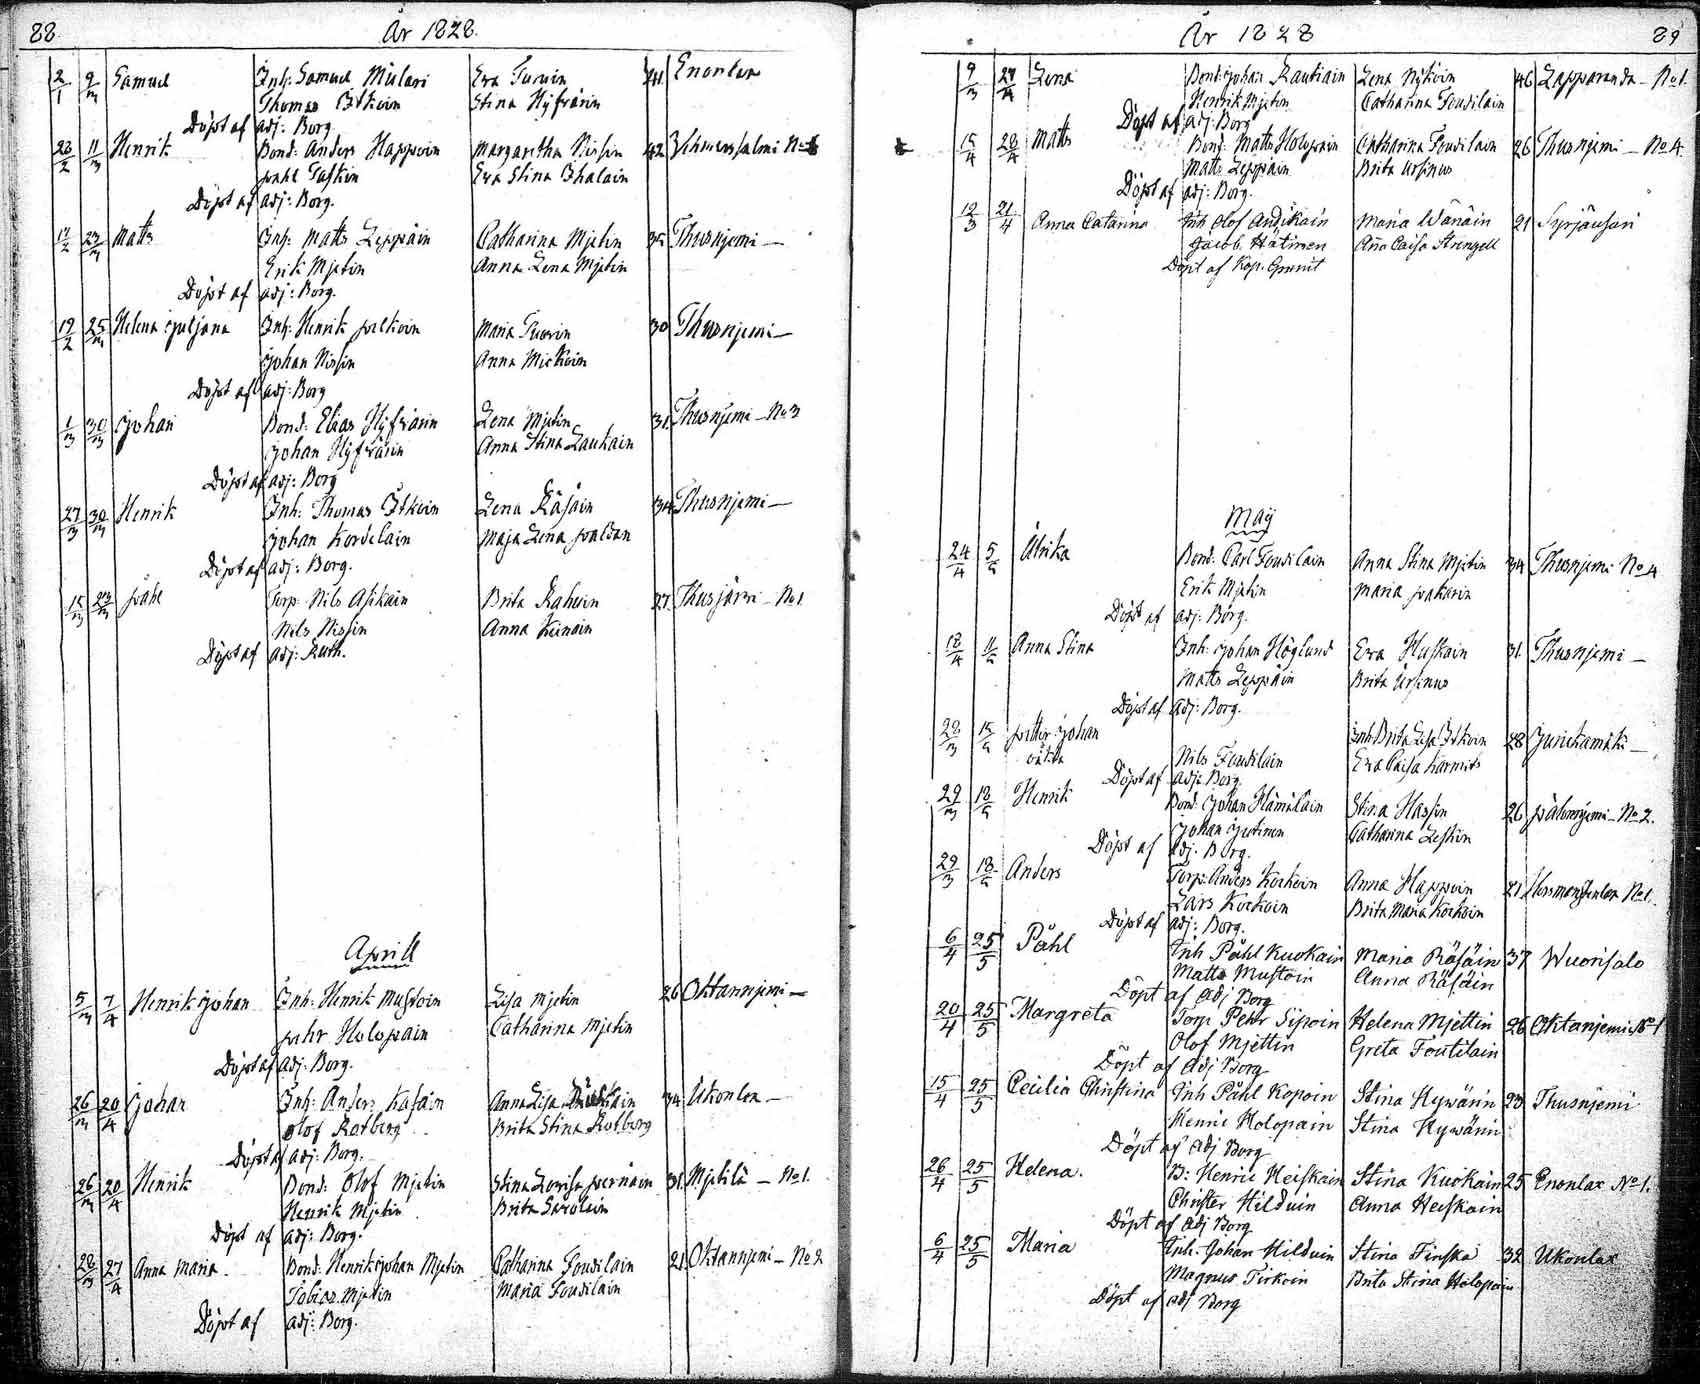 88 År 1828.
2/1 9/3 Samuel Inh: Samuel Mulari Eva Turuin 41. Enonlax
Thomas Itkoin Stina Hyfvärin
Döpt af adj: Borg
23/2 11/3 Henrik Bond: Anders Happoin Margaretha Nissin 42
Påhl Eva Stina Ihalain
Döpt af adj: Borg.
17/2 23/3 Matts Inh: Matts Leppäin Catharina Mjetin 35 Thusnjemi —
Erik Mjetin Anna Lena Mjetin
Döpt af adj: Borg.
19/2 25/3 Helena Juljana Inh: Henrik Maria Turuin 30 Thusnjemi —
Johan Nissin Anna Mickoin
Döpt af adj: Borg
1/3 30/3 Johan Bond: Elias Hyfvärin Lena Mjetin 31. Thusnjemi — No 3
Johan Hyfvärin Anna Stina Laukain
Döpt af adj: Borg
27/3 30/3 Henrik Inh: Thomas Itkoin Lena Räsäin 34 Thusnjemi —
Johan Kordelain Maja Lena
Döpt af adj: Borg.
15/3 23/3 Påhl Torp: Nils Asikain Brita Rahuin 27. Thusjärvi — No 1.
Nils Nissin Anna Keinain
Döpt af adj: Ruth.
Aprill
5/3 7/4 Henrik Johan Inh: Henrik Mustoin Lisa Mjetin 26 Oktannjemi —
Pehr Holopain Catharina Mjetin
Döpt af adj: Borg.
26/3 20/4 Johan Inh: Anders Anna Lisa 34. Ukonlax —
Olof Rotberg Brita Stina Rotberg
Döpt af adj: Borg.
26/3 20/4 Henrik Bond: Olof Mjetin Stina Lovisa Pernain 31. Mjetilä — No 1.
Henrik Mjetin Brita Savolain
Döpt af adj: Borg.
28/3 27/4 Anna Maria Bond: Henrik Johan Mjetin Catharina Foudilain 21. Oktannjemi — No 2
Tobias Mjetin Maria Foudilain
Döpt af adj: Borg.
År 1828 89
9/3 27/4 Lena Bond: Johan Rautiain Lena Nykoin 46 Lapparanda — No 1.
Henrik Mjetin Catharina Foudilain
Döpt af adj: Borg
15/4 28/4 Matts Bond: Matts Holopain Catharina Foudilain 26 Thusnjemi — No 4.
Matts Leppäin Brita Ursinus
Döpt af adj: Borg.
19/3 21/4 Anna Catarina Inh Olof Andikain Maria Wänäin 21 Syrjäsari
Jacob Hätinen Aña Caisa Strengell
Döpt af Kap. Grunit
Maij
24/4 5/5 Ulrika Bond: Carl Foudilain Anna Stina Mjetin 34 Thusnjemi No 4
Erik Mjetin Maria Pakarin
Döpt af adj: Borg.
18/4 11/5 Anna Stina Inh: Johan Höglund Eva Huskain 31. Thusnjemi —
Matts Leppäin Brita Ursinus
Döpt af adj: Borg.
28/3 15/5 Petter Johan Inh: Brita Lisa Itkoin 28 Jurickamäki —
oäkta Nils Foudilain Eva Caisa Harmits
Döpt af adj: Borg.
29/3 18/5 Henrik Bond: Johan Hämäläin Stina Hassin 26 Pålonjemi — No 2.
Johan Jortinen Catharina Leskin
Döpt af adj: Borg.
29/3 18/5 Anders Torp: Anders Korkoin Anna Happoin 21 No 1.
Lars Korkoin Brita Maria Korkoin
Döpt af adj: Borg.
6/4 25/5 Påhl Inh Påhl Kuokain Maria Räsäin 37 Wuorisalo
Matts Mustoin Anna Räsäin
Döpt af adj Borg
20/4 25/5 Margreta Torp Pehr Sipoin Helena Mjettin 26 Oktanjemi No 1
Olof Mjettin Greta Foutilain
Döpt af adj Borg
15/4 25/5 Cecilia Christina Inh Påhl Kopoin Stina Hywärin 23 Thusnjemi
Henric Holopain Stina Hywärin
Döpt af adj Borg
26/4 25/5 Helena. B: Henric Heiskain Stina Kuokain 25 Enonlax No 1.
Christer Hilduin Anna Heiskain
Döpt af adj Borg
6/4 25/5 Maria Inh. Johan Hilduin Stina Finska 32 Ukonlax
Magnus Tirkoin Brita Stina Holopain
Döpt af adj Borg